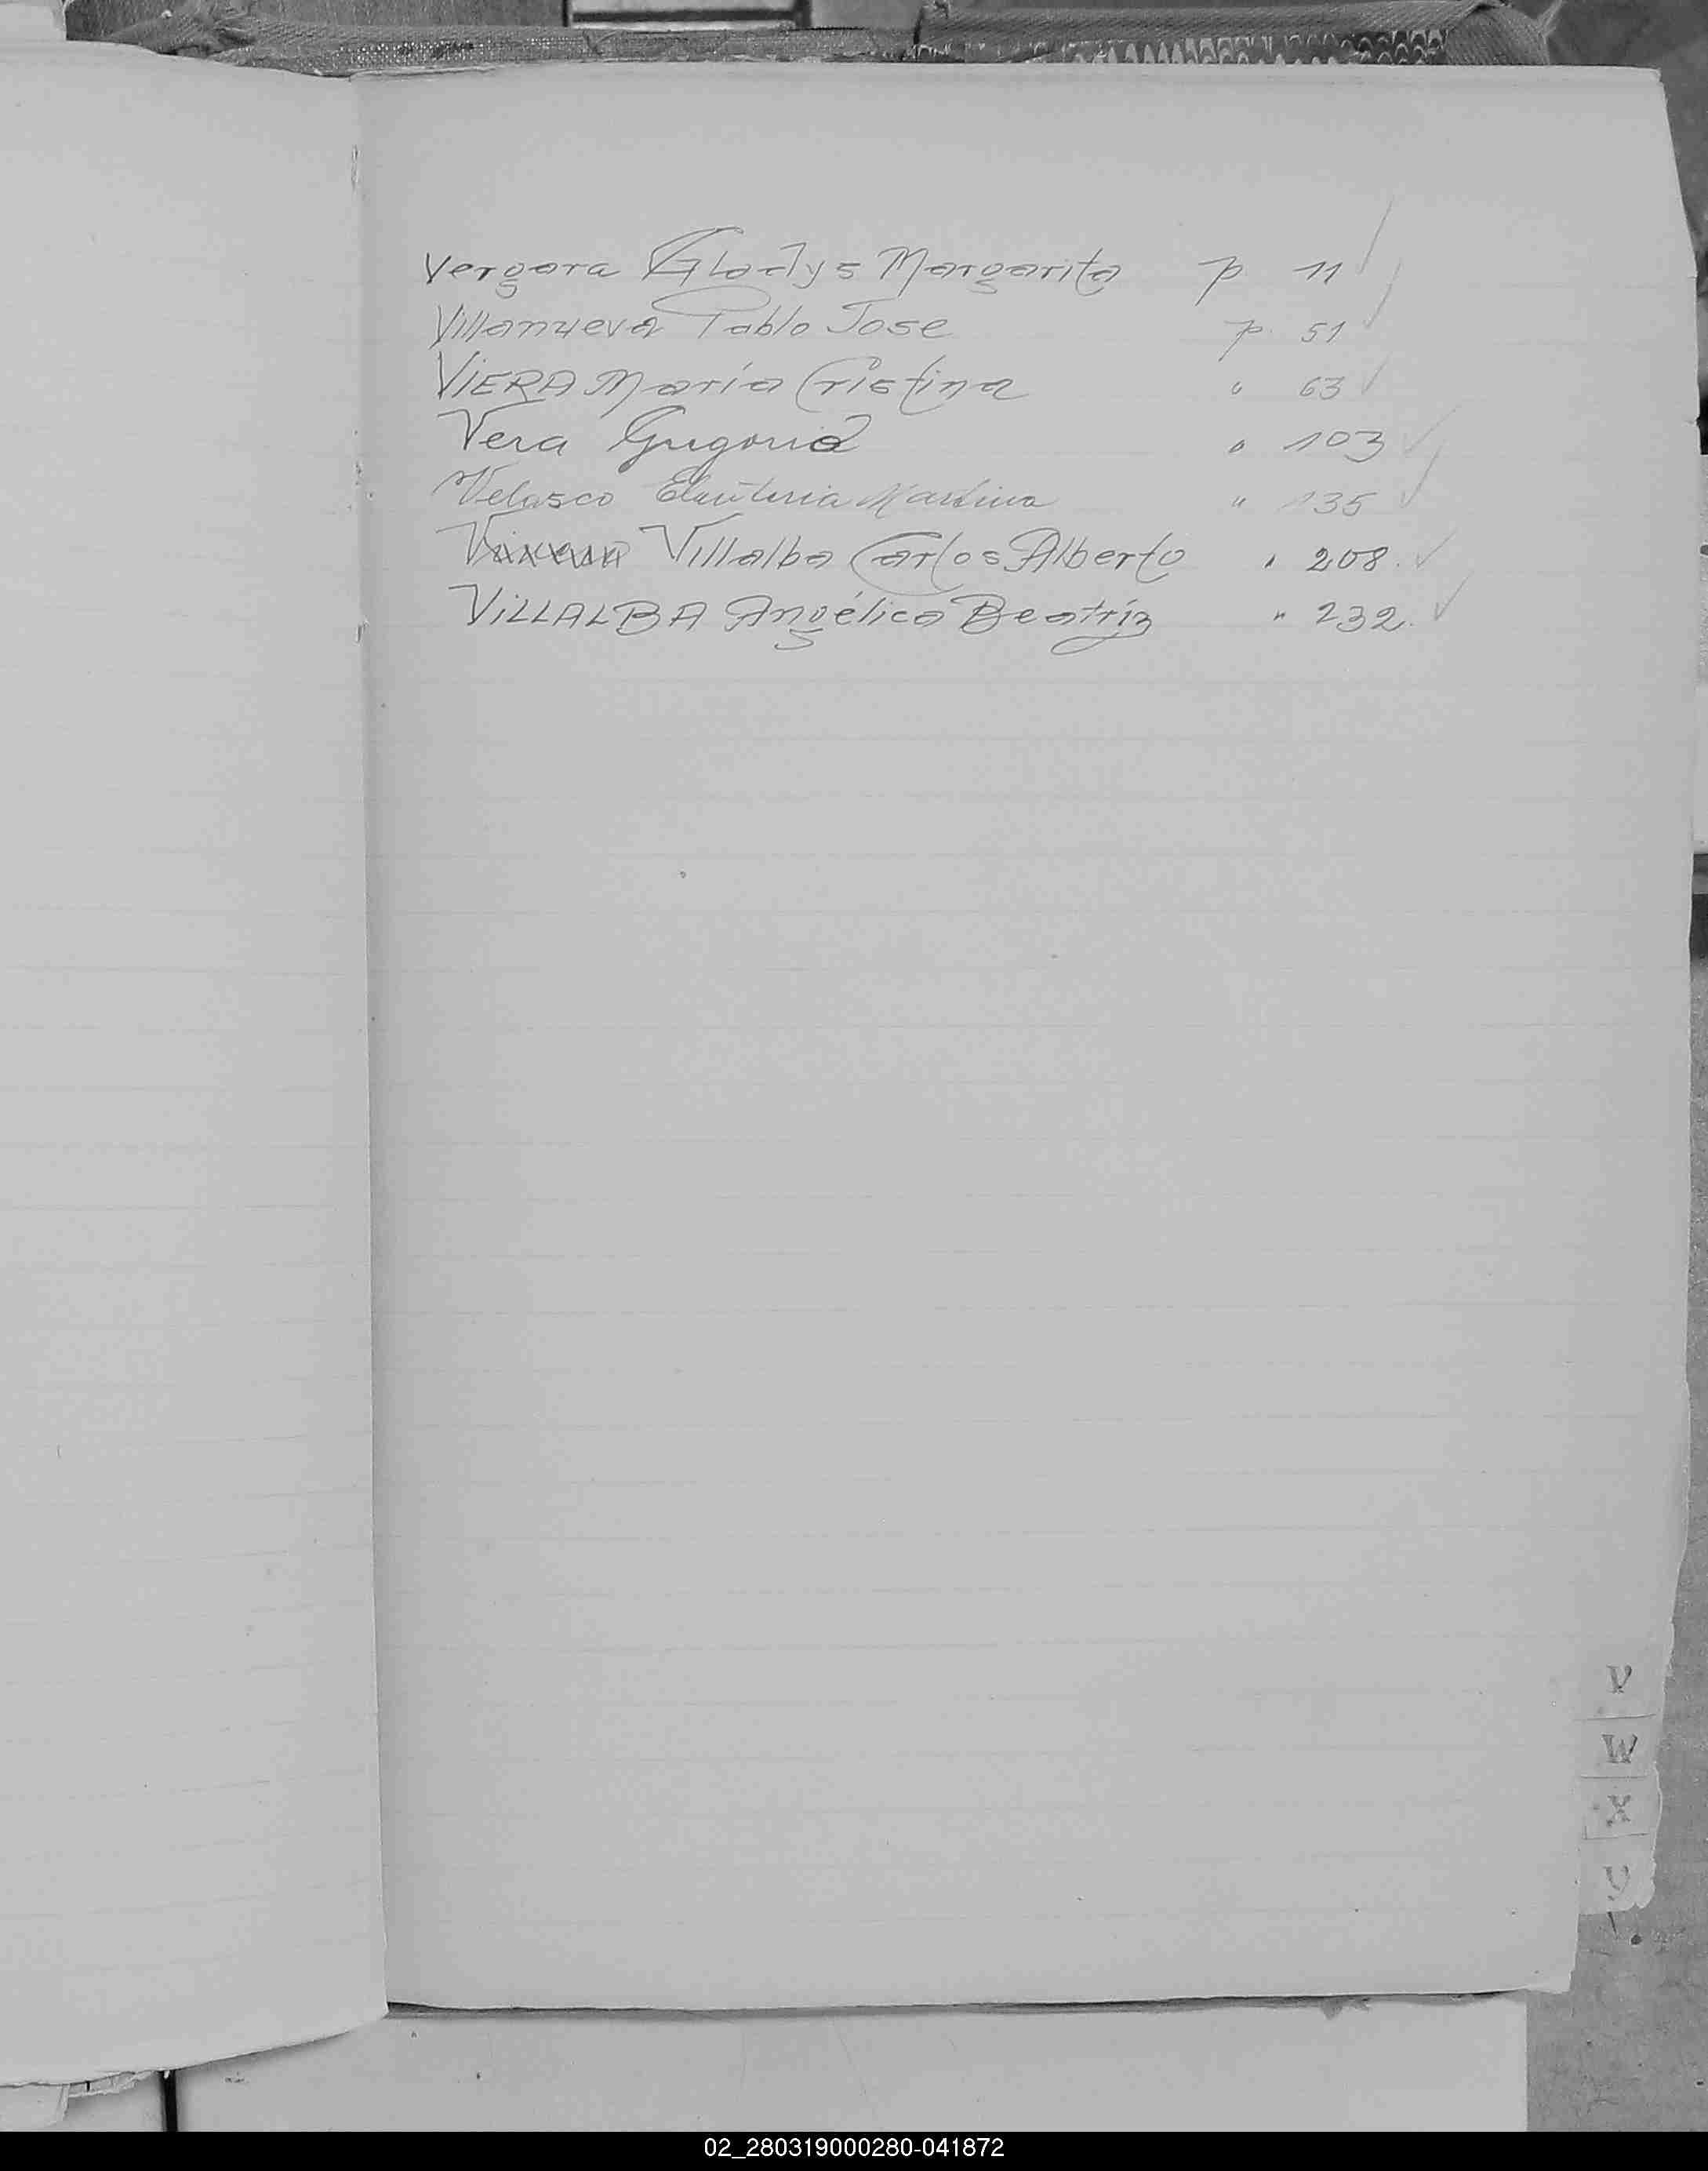 Vergara Gladys Margarita p 11
Villanueva Pablo Jose p. 51
VIERA María Cristina " 63
Vera Gregoria " 103
Velasco Eleuteria Martina " 135
Villalba Carlos Alberto " 208.
VILLALBA Angélica Beatríz " 232.
V
W
X
Y
02_280319000280-041872